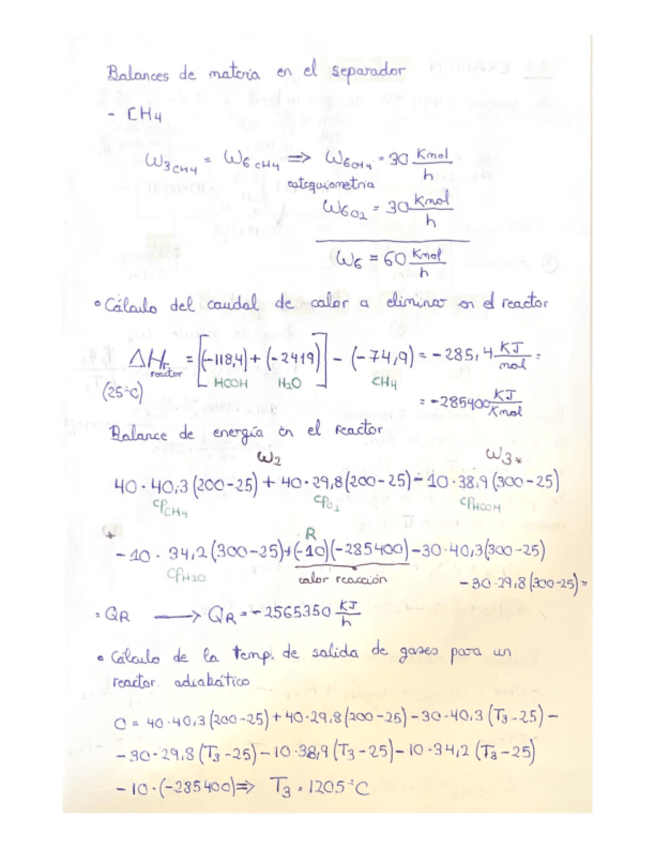 Balances de materia en el separador
- CH4
W3CH4 = W6CH4 => W6CH4 = 30 Kmol/h
estequiometria
W6O2 = 30 Kmol/h
W6 = 60 Kmol/h
• Cálculo del caudal de calor a eliminar en el reactor
ΔHr = [(-118,4) + (-2419)] - (-74,9) = -285,4 KJ/mol =
reactor HCOH H2O CH4
(25°C) = -285400 KJ/Kmol
Balance de energía en el reactor
W2 W3*
40 · 40,3 (200-25) + 40 · 29,8 (200-25) - 10 · 38,9 (300-25)
CpCH4 CpO2 CpHCOH
* R
- 10 · 34,2 (300-25) + (-10)(-285400) - 30 · 40,3 (300-25)
CpH2O calor reacción
- 30 · 29,8 (300-25) =
= QR → QR = -2565350 KJ/h
• Cálculo de la temp. de salida de gases para un
reactor adiabático
0 = 40 · 40,3 (200-25) + 40 · 29,8 (200-25) - 30 · 40,3 (T3-25) -
- 30 · 29,8 (T3-25) - 10 · 38,9 (T3-25) - 10 · 34,2 (T3-25)
- 10 · (-285400) => T3 = 1205°C